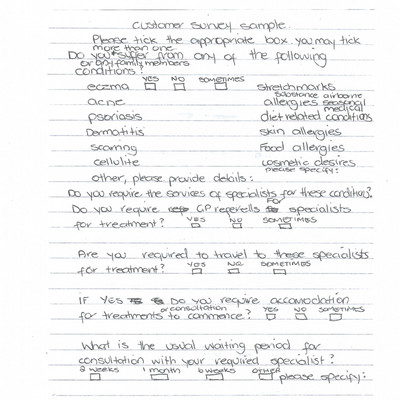 Customer survey sample.
Please tick the appropriate box you may tick
more than one
Do you suffer from any of the following
or any family members
conditions?
YES NO SOMETIMES
eczema stretchmarks
substance airborne
acne allergies seasonal
medical
psoriasis diet related conditions
Dermatitis skin allergies
scarring Food allergies
cellulite cosmetic desires
please specify:
other, please provide details:
Do you require the services of specialists for these condition?
Do you require GP referrells for specialists
for treatment? YES NO SOMETIMES
Are you required to travel to these specialists
for treatment? YES NO SOMETIMES
IF YES Do you require accomodation
or consultation
for treatments to commence? YES NO sometimes
What is the usual waiting period for
consultation with your required specialist?
2 weeks 1 month 6 weeks other please specify: